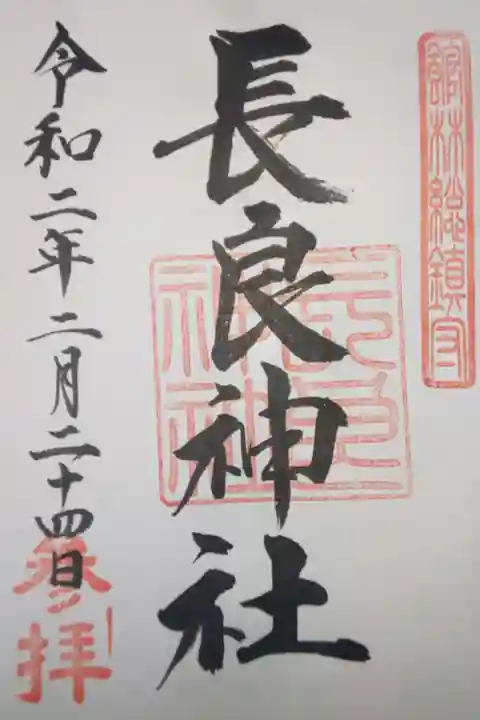 館林総鎮守
長良神社
長良神社
令和二年二月二十四日
参拝